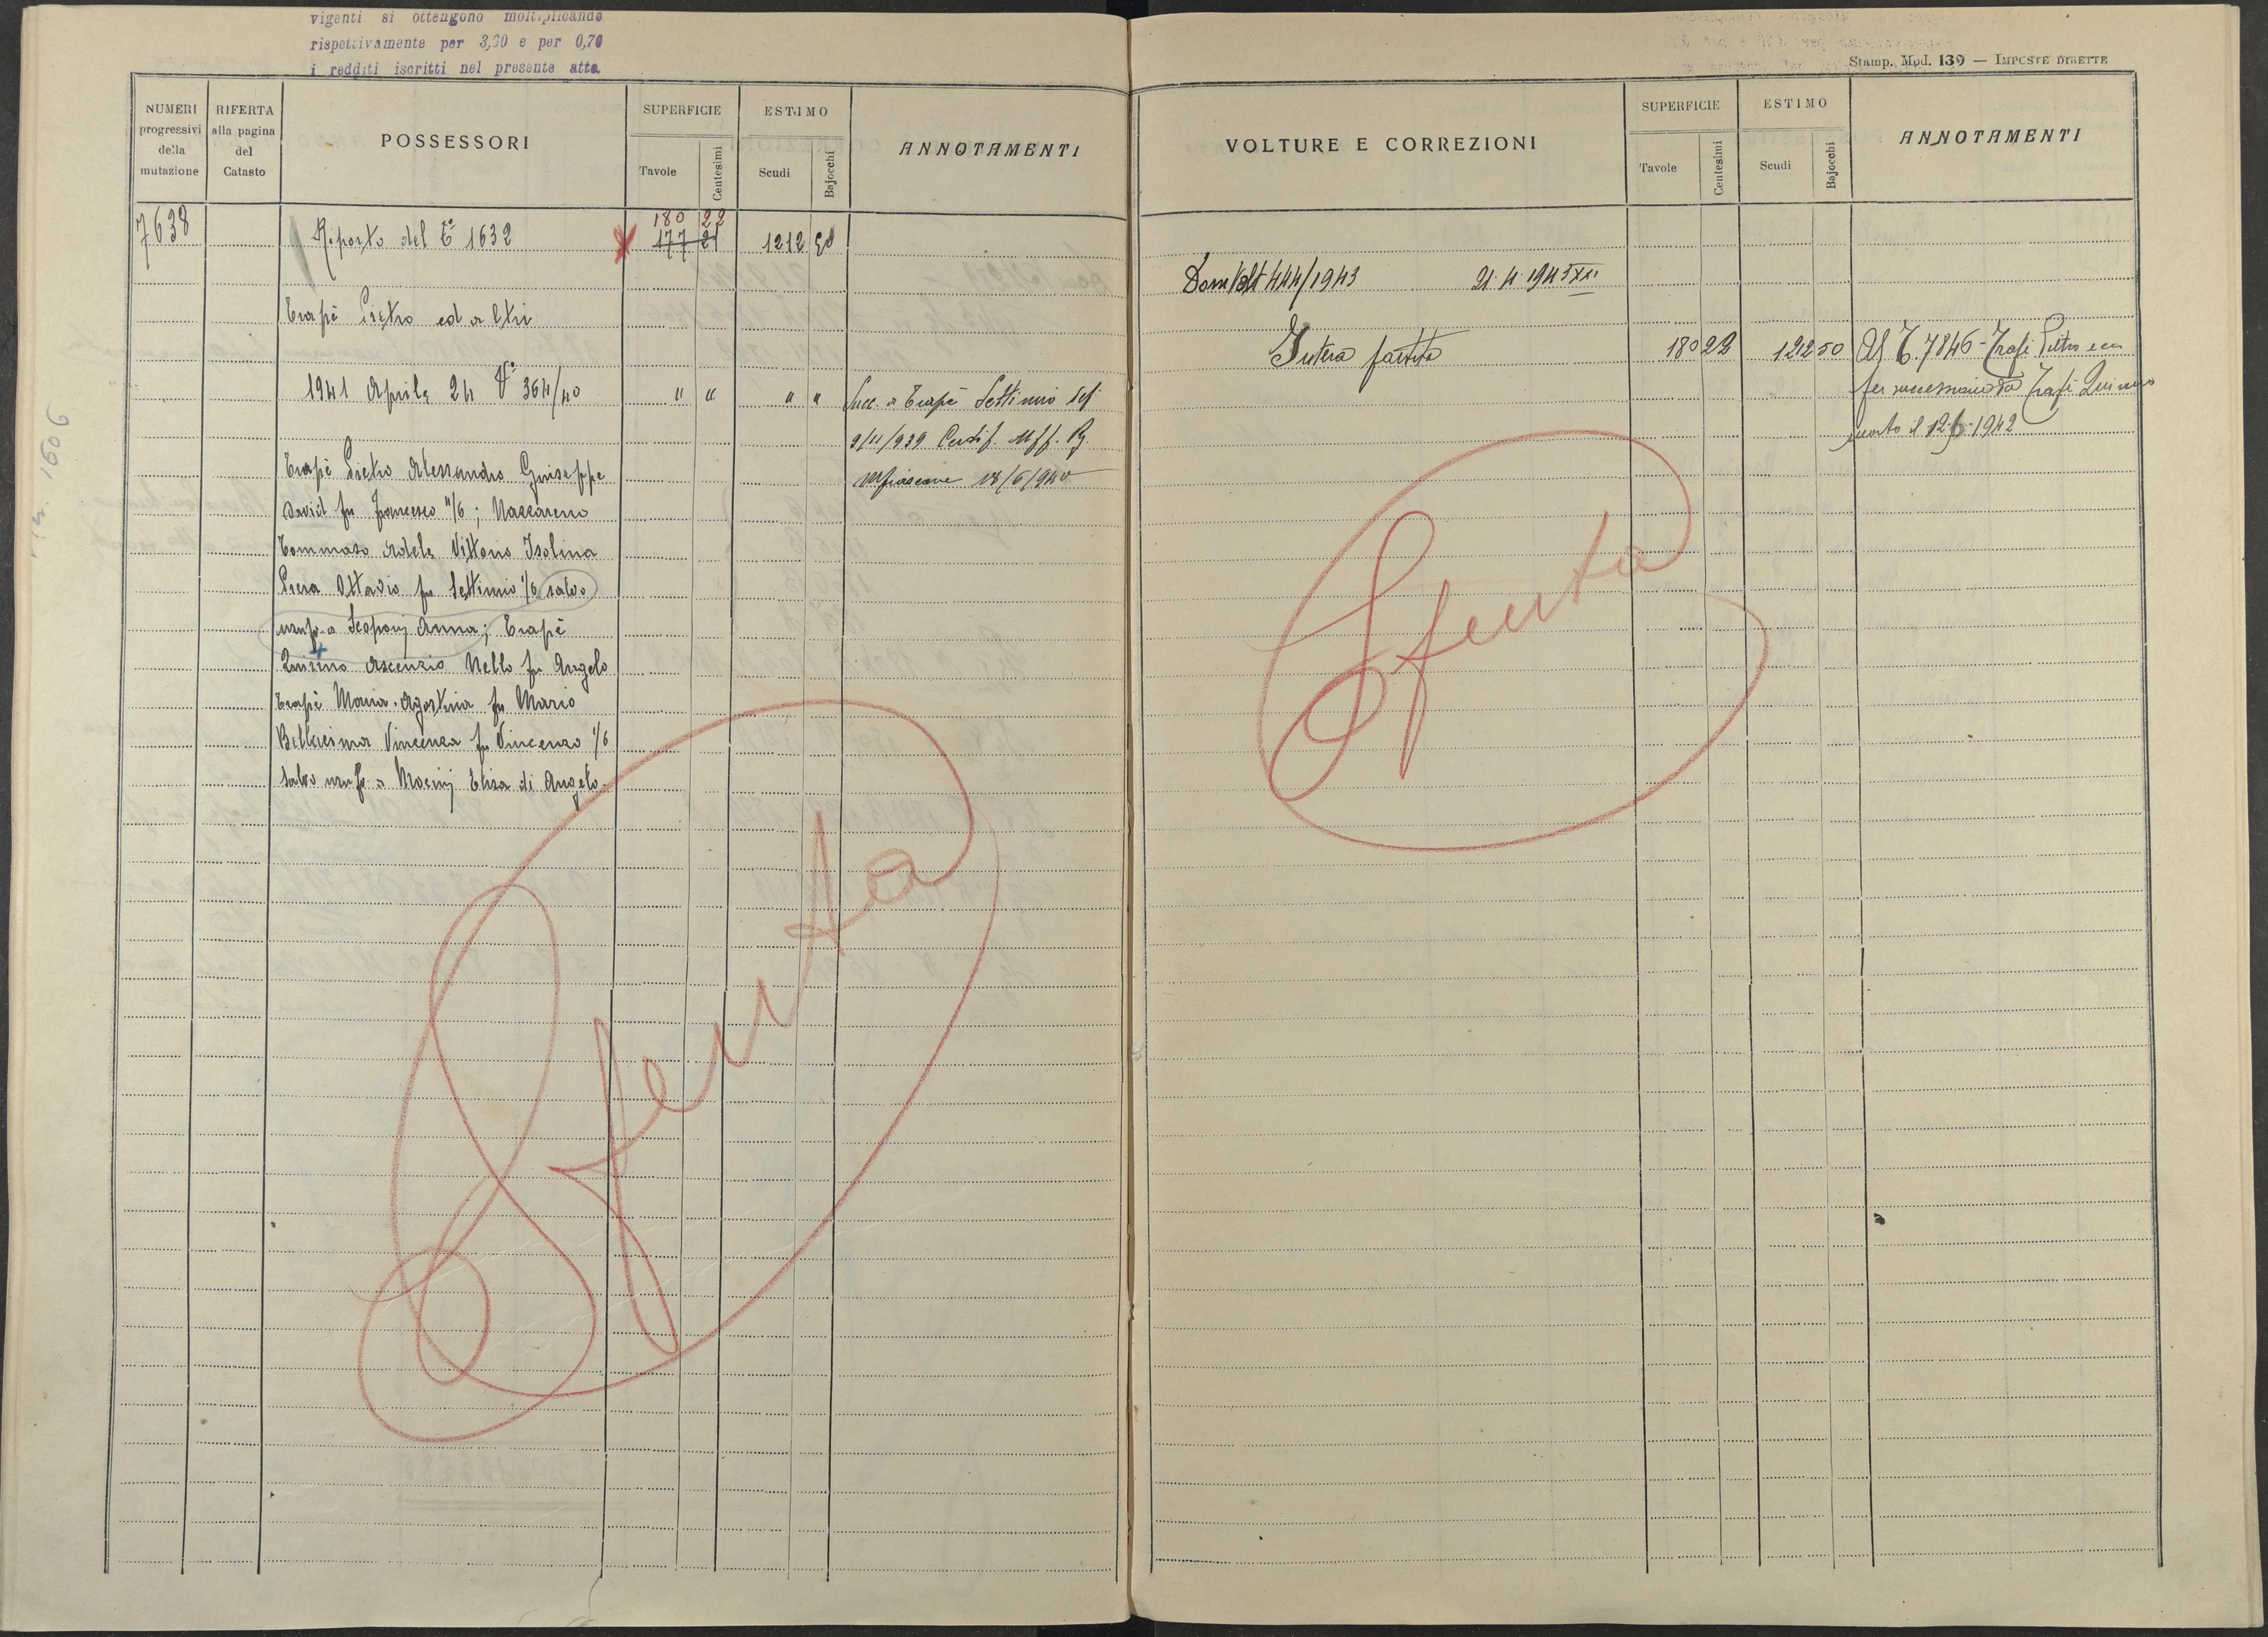 vigenti si ottengono moltiplicando
rispettivamente per 3,60 e per 0,70
i redditi iscritti nel presente atto.
NUMERI progressivi della mutazione
RIFERTA alla pagina del Catasto
POSSESSORI
SUPERFICIE
Tavole
Centesimi
ESTIMO
Scudi
Bajocchi
ANNOTAMENTI
7638
Riporto del T° 1632
180 22
177 21
1212 50
Trapè Pietro ed altri
1941 Aprile 24 V° 364/40
" "
" "
Succ. a Trapè Settimio def
9/11/939 Certif. Uff. Rg.
18/6/940
Trapè Pietro Alessandro Giuseppe
David fu Francesco 4/6; Nazzareno
Tommaso Adele Vittorio Isolina
Piera Ottavio fu Settimio 1/6 salvo
usuf. a Scoponj Anna; Trapè
Quirino Ascenzio Nello fu Angelo
Trapè Maria Agostina fu Mario
Vincenza fu Vincenzo 1/6
salvo usuf. a Elisa di Angelo.
Sfenta
Stamp. Mod. 139 — IMPOSTE DIRETTE
VOLTURE E CORREZIONI
SUPERFICIE
Tavole
Centesimi
ESTIMO
Scudi
Bajocchi
ANNOTAMENTI
Dom Volt 444/1943
Intera partita
180 22
1212 50
Al T. 7846 - Trapè Pietro ecc
per successione da Trapè Quirino
morto il 12-6-1942
Sfenta